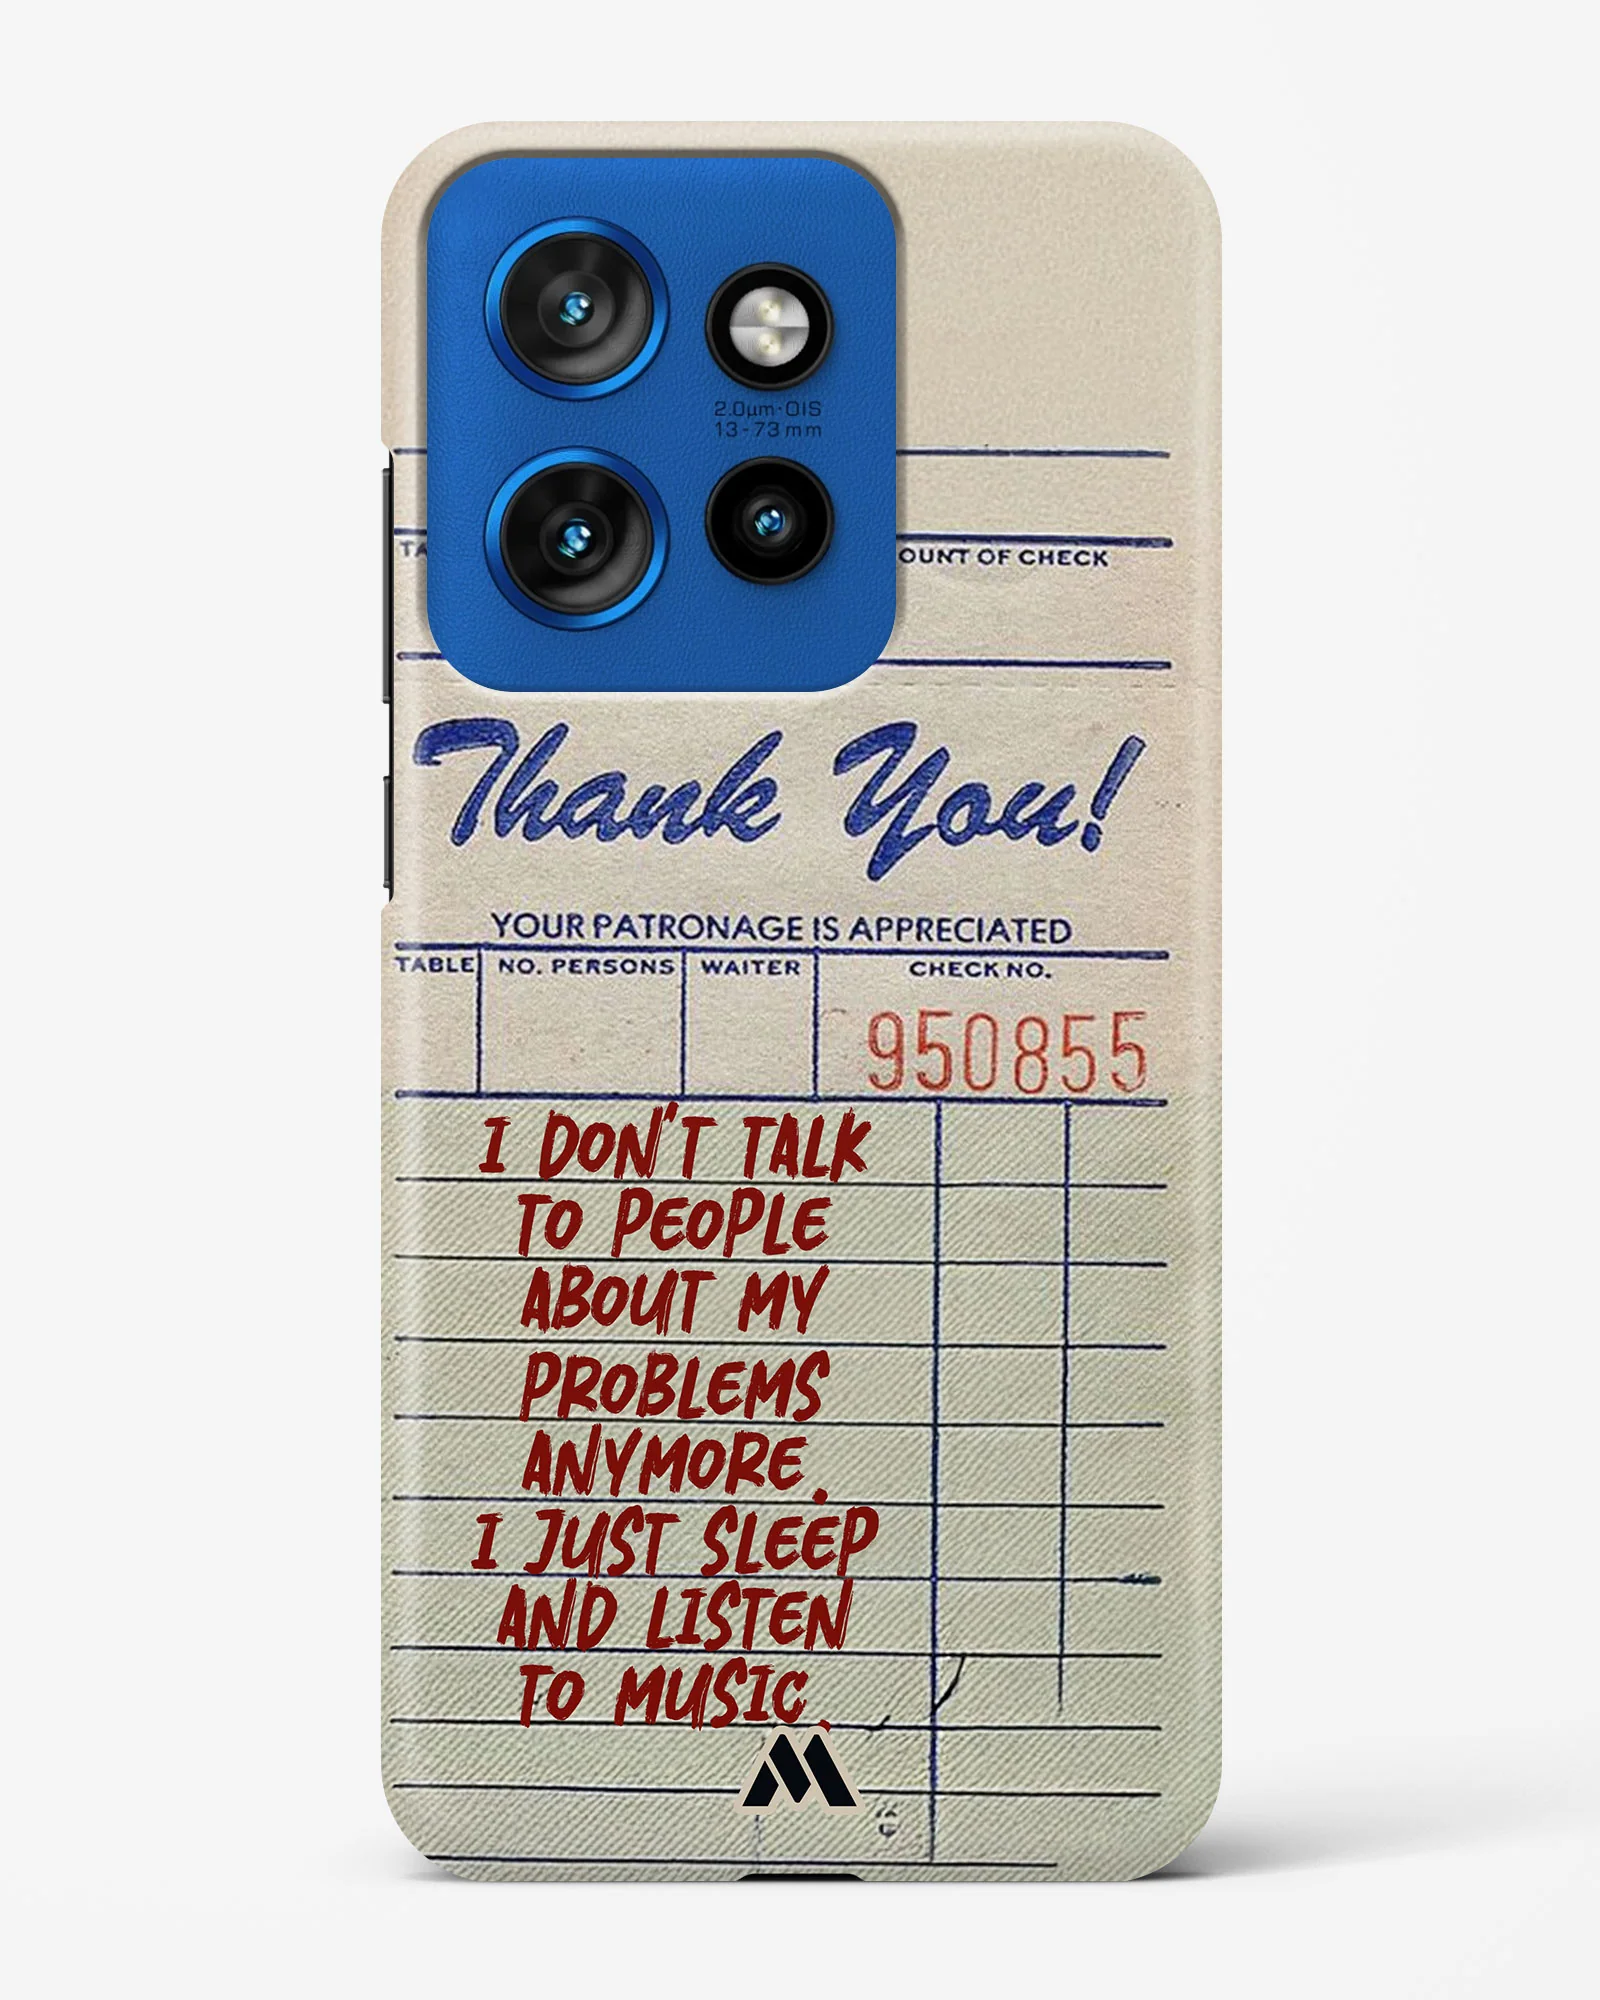 2.0µm·OIS
13-73mm
TA
OUNT OF CHECK
Thank You!
YOUR PATRONAGE IS APPRECIATED
TABLE NO. PERSONS WAITER CHECK NO.
950855
I DON'T TALK
TO PEOPLE
ABOUT MY
PROBLEMS
ANYMORE.
I JUST SLEEP
AND LISTEN
TO MUSIC.